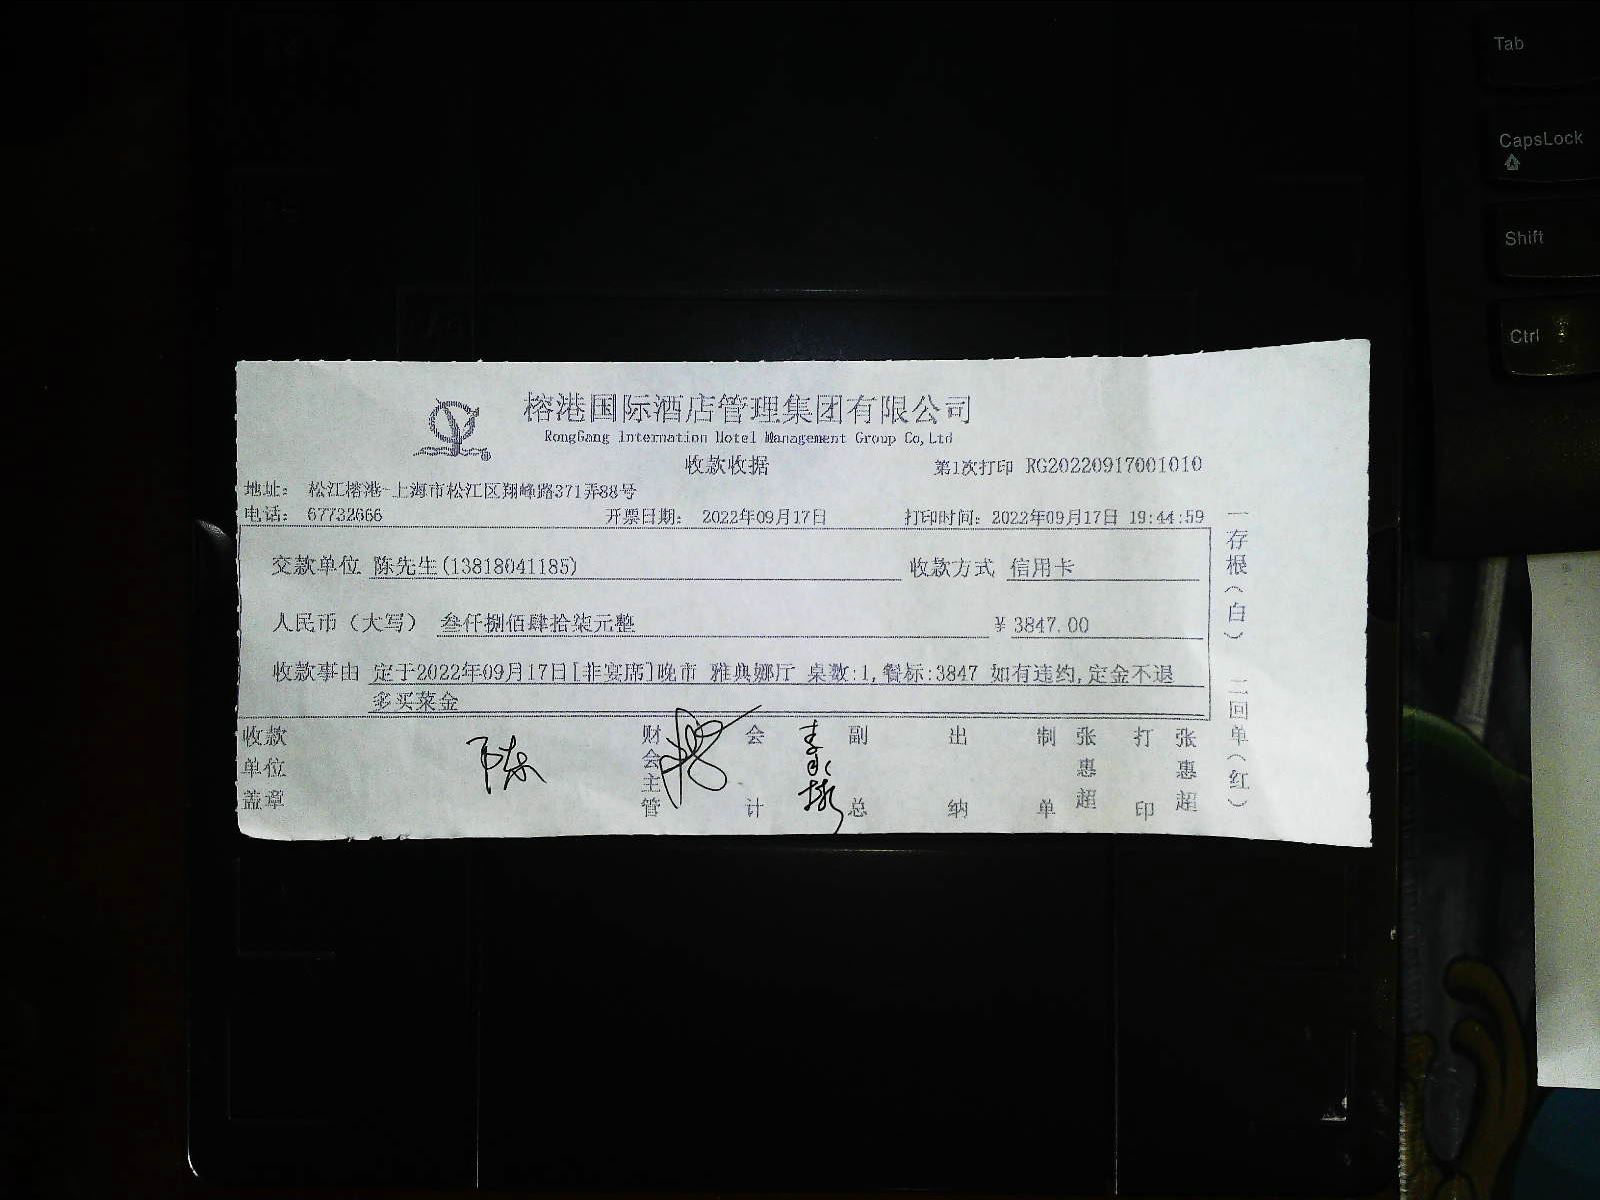 Tab
CapsLock
Shift
Ctrl
榕港国际酒店管理集团有限公司
RongGang Internation Hotel Management Group Co,Ltd
收款收据 第1次打印 RG20220917001010
地址: 松江榕港-上海市松江区翔峰路371弄88号
电话: 67732666 开票日期: 2022年09月17日 打印时间: 2022年09月17日 19:44:59
交款单位 陈先生(13818041185) 收款方式 信用卡
人民币(大写) 叁仟捌佰肆拾柒元整 ¥ 3847.00
收款事由 定于2022年09月17日[非宴席]晚市 雅典娜厅 桌数:1,餐标:3847 如有违约,定金不退
多买菜金
收款单位盖章 陈 财会主管 会计 副总 出纳 制单 张惠超 打印 张惠超
一存根(白) 二回单(红)